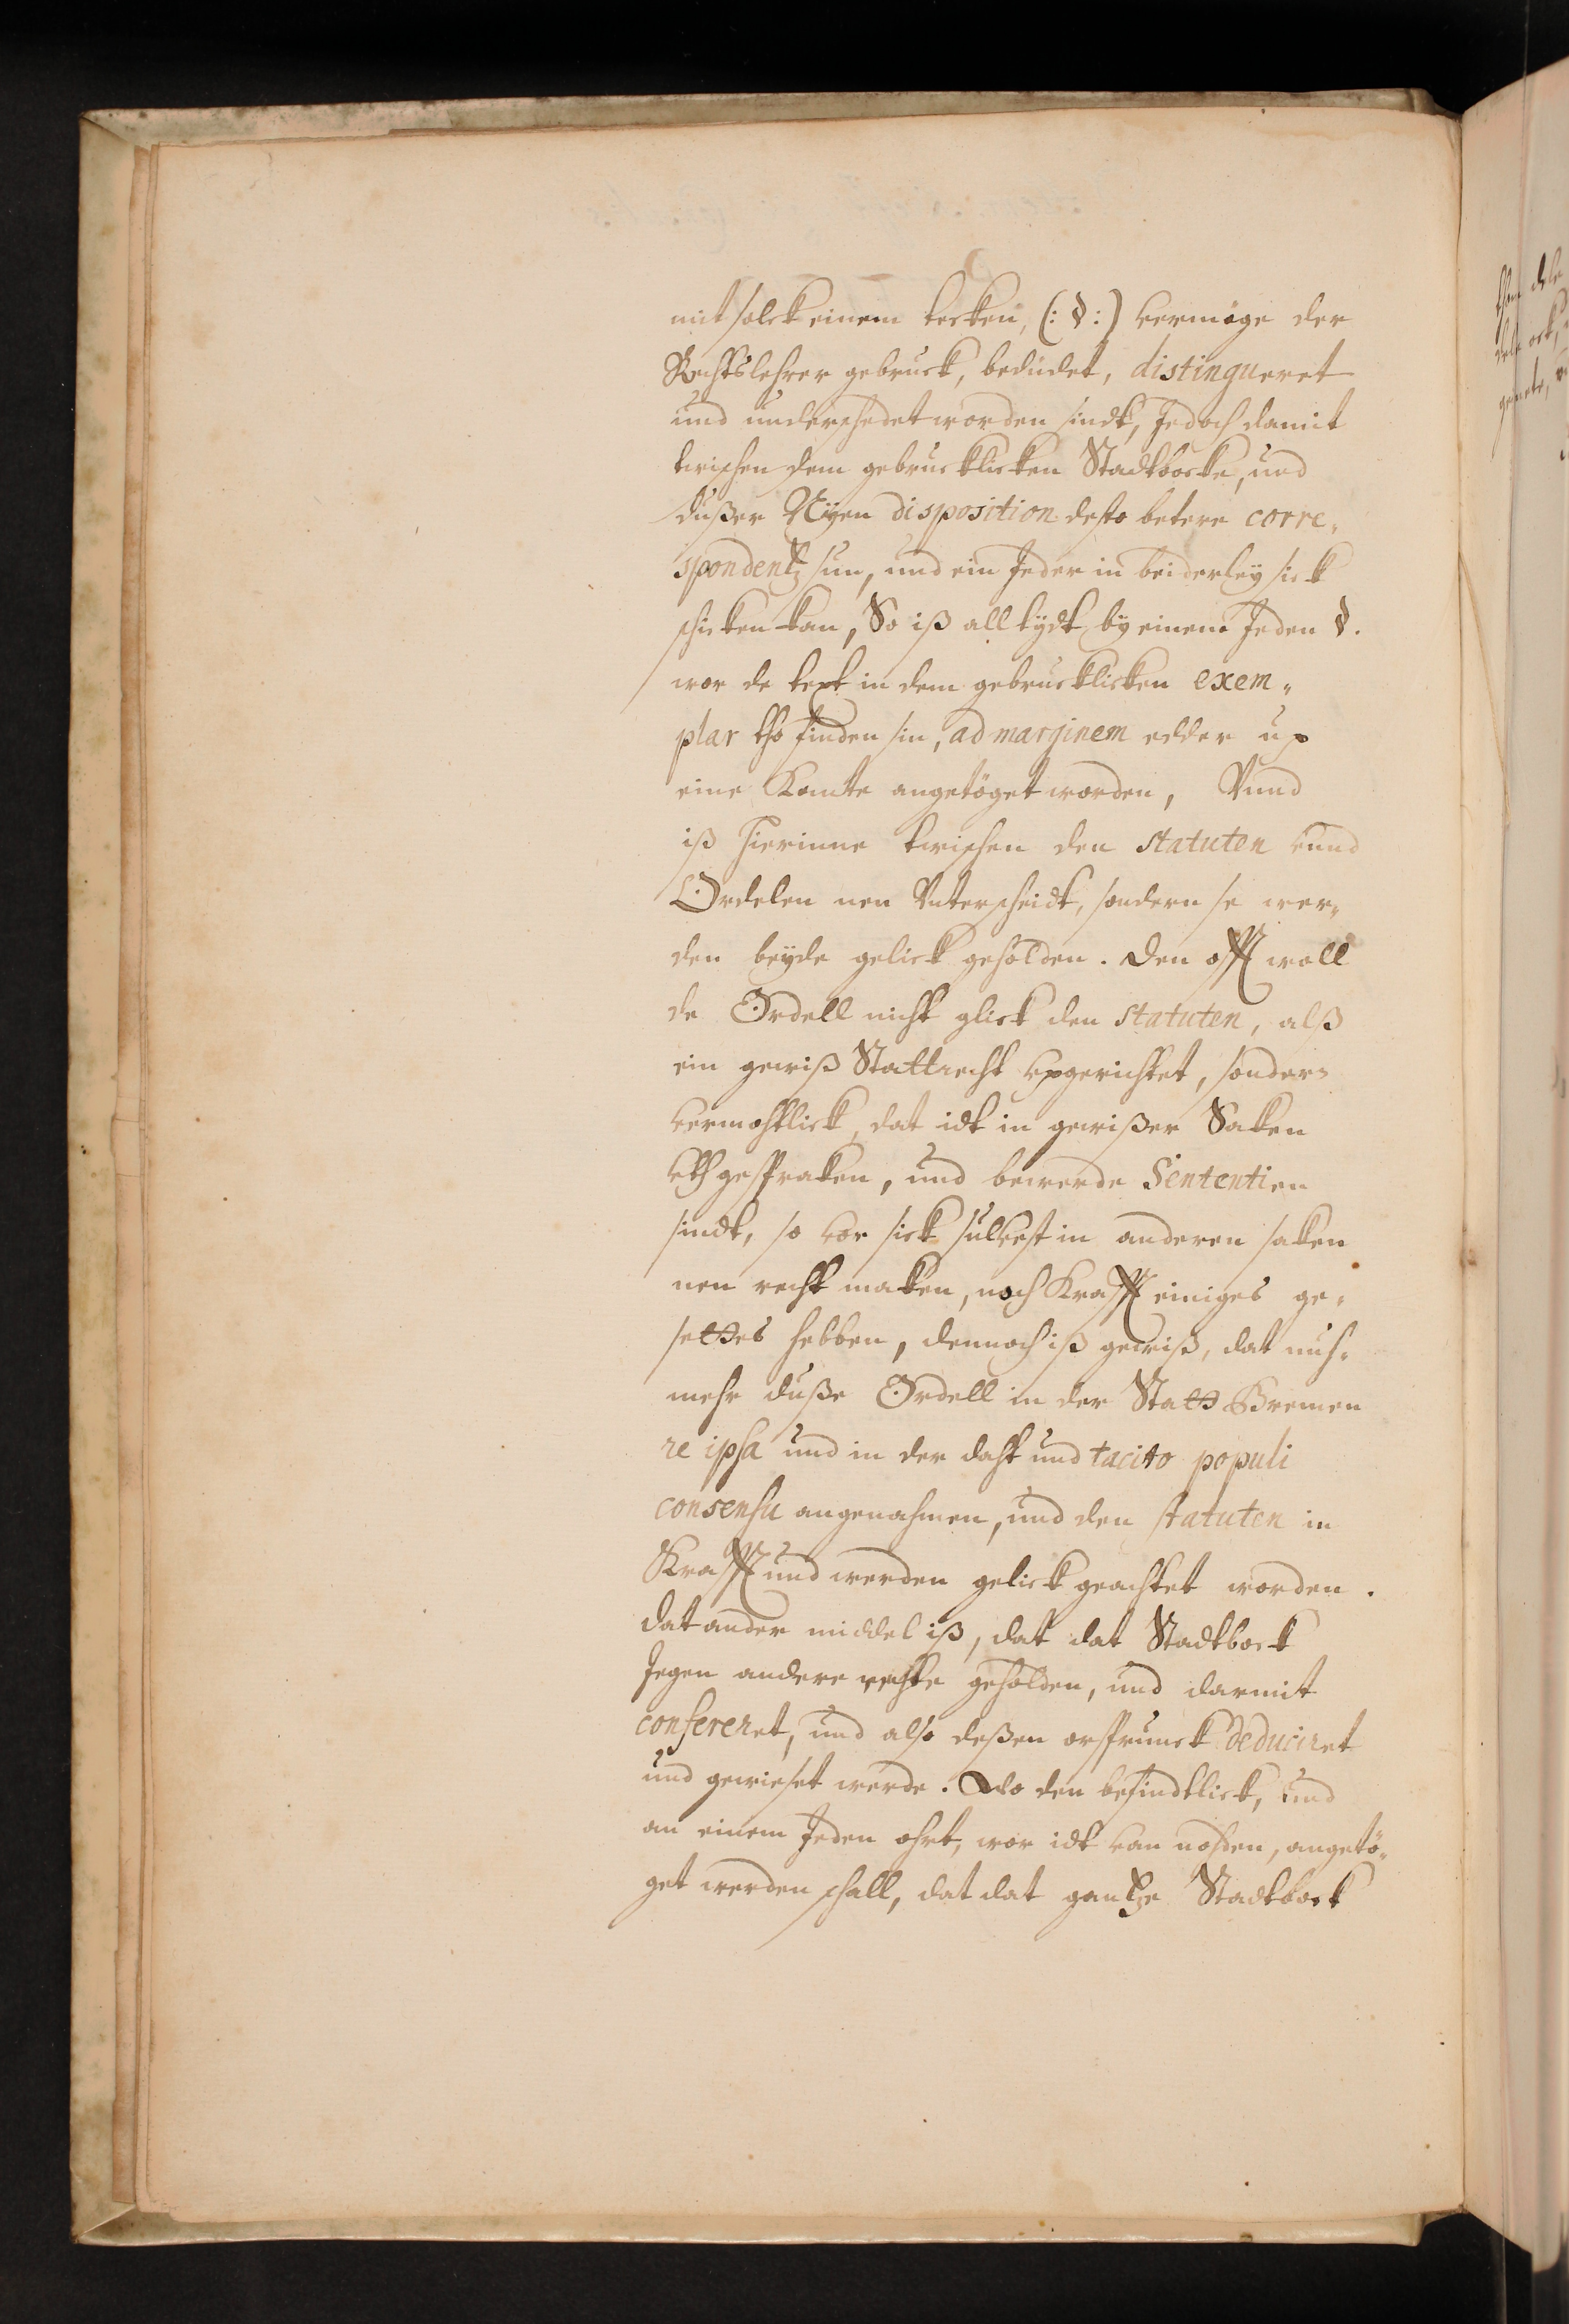 mit solck einem tecken, (: §:) vermöge der
Rechtslehrer gebruck, bedüdet, distingueret
und underschedet worden sindt, Jedoch damit
twischen dem gebrucklicken Stadtboeke, und
dußer Nÿen disposition desto betere corre„
spondentz sün, und ein Jeder in beiderleÿ sick
schicken kan, So iß alltÿdt bÿ einem Jeden §.
wor de text in dem gebrucklicken exem„
plar tho finden sin, ad marginem edder up
eine Kante angetöget worden, Vnnd
iß hierinne twischen den statuten vnnd
Ordelen nen Vnterscheidt, sondern se wer„
den beÿde gelick geholden. Den offt woll
de Ordell nicht glick den statuten, alß
ein gewiß Stattrecht vpgerichtet, sondern
vermohtlick, dat idt in gewißer Saken
vthgespraken, und bewerde Sententien
sindt, so vor sick sülvest in anderen saken
nen recht maken, noch Krafft einiges ge„
settes hebben, dennoch iß gewiß, dat nuh„
mehr duße Ordell in der Statt Bremen
re ipsa und in der daht und tacito populi
consensu angenahmen, und den statuten in
Krafft und werden gelick geachtet worden.
dat ander middel iß, dat dat Stadtbock
Jegen andere rechte geholden, und darmit
confereret, und also deßen orsprunck deduciret
und gewieset werde. Do den befindtlick, und
an einem Jeden ohrt, wor idt van nohden, angetö„
get werden schall, dat dat gantze Stadtbock